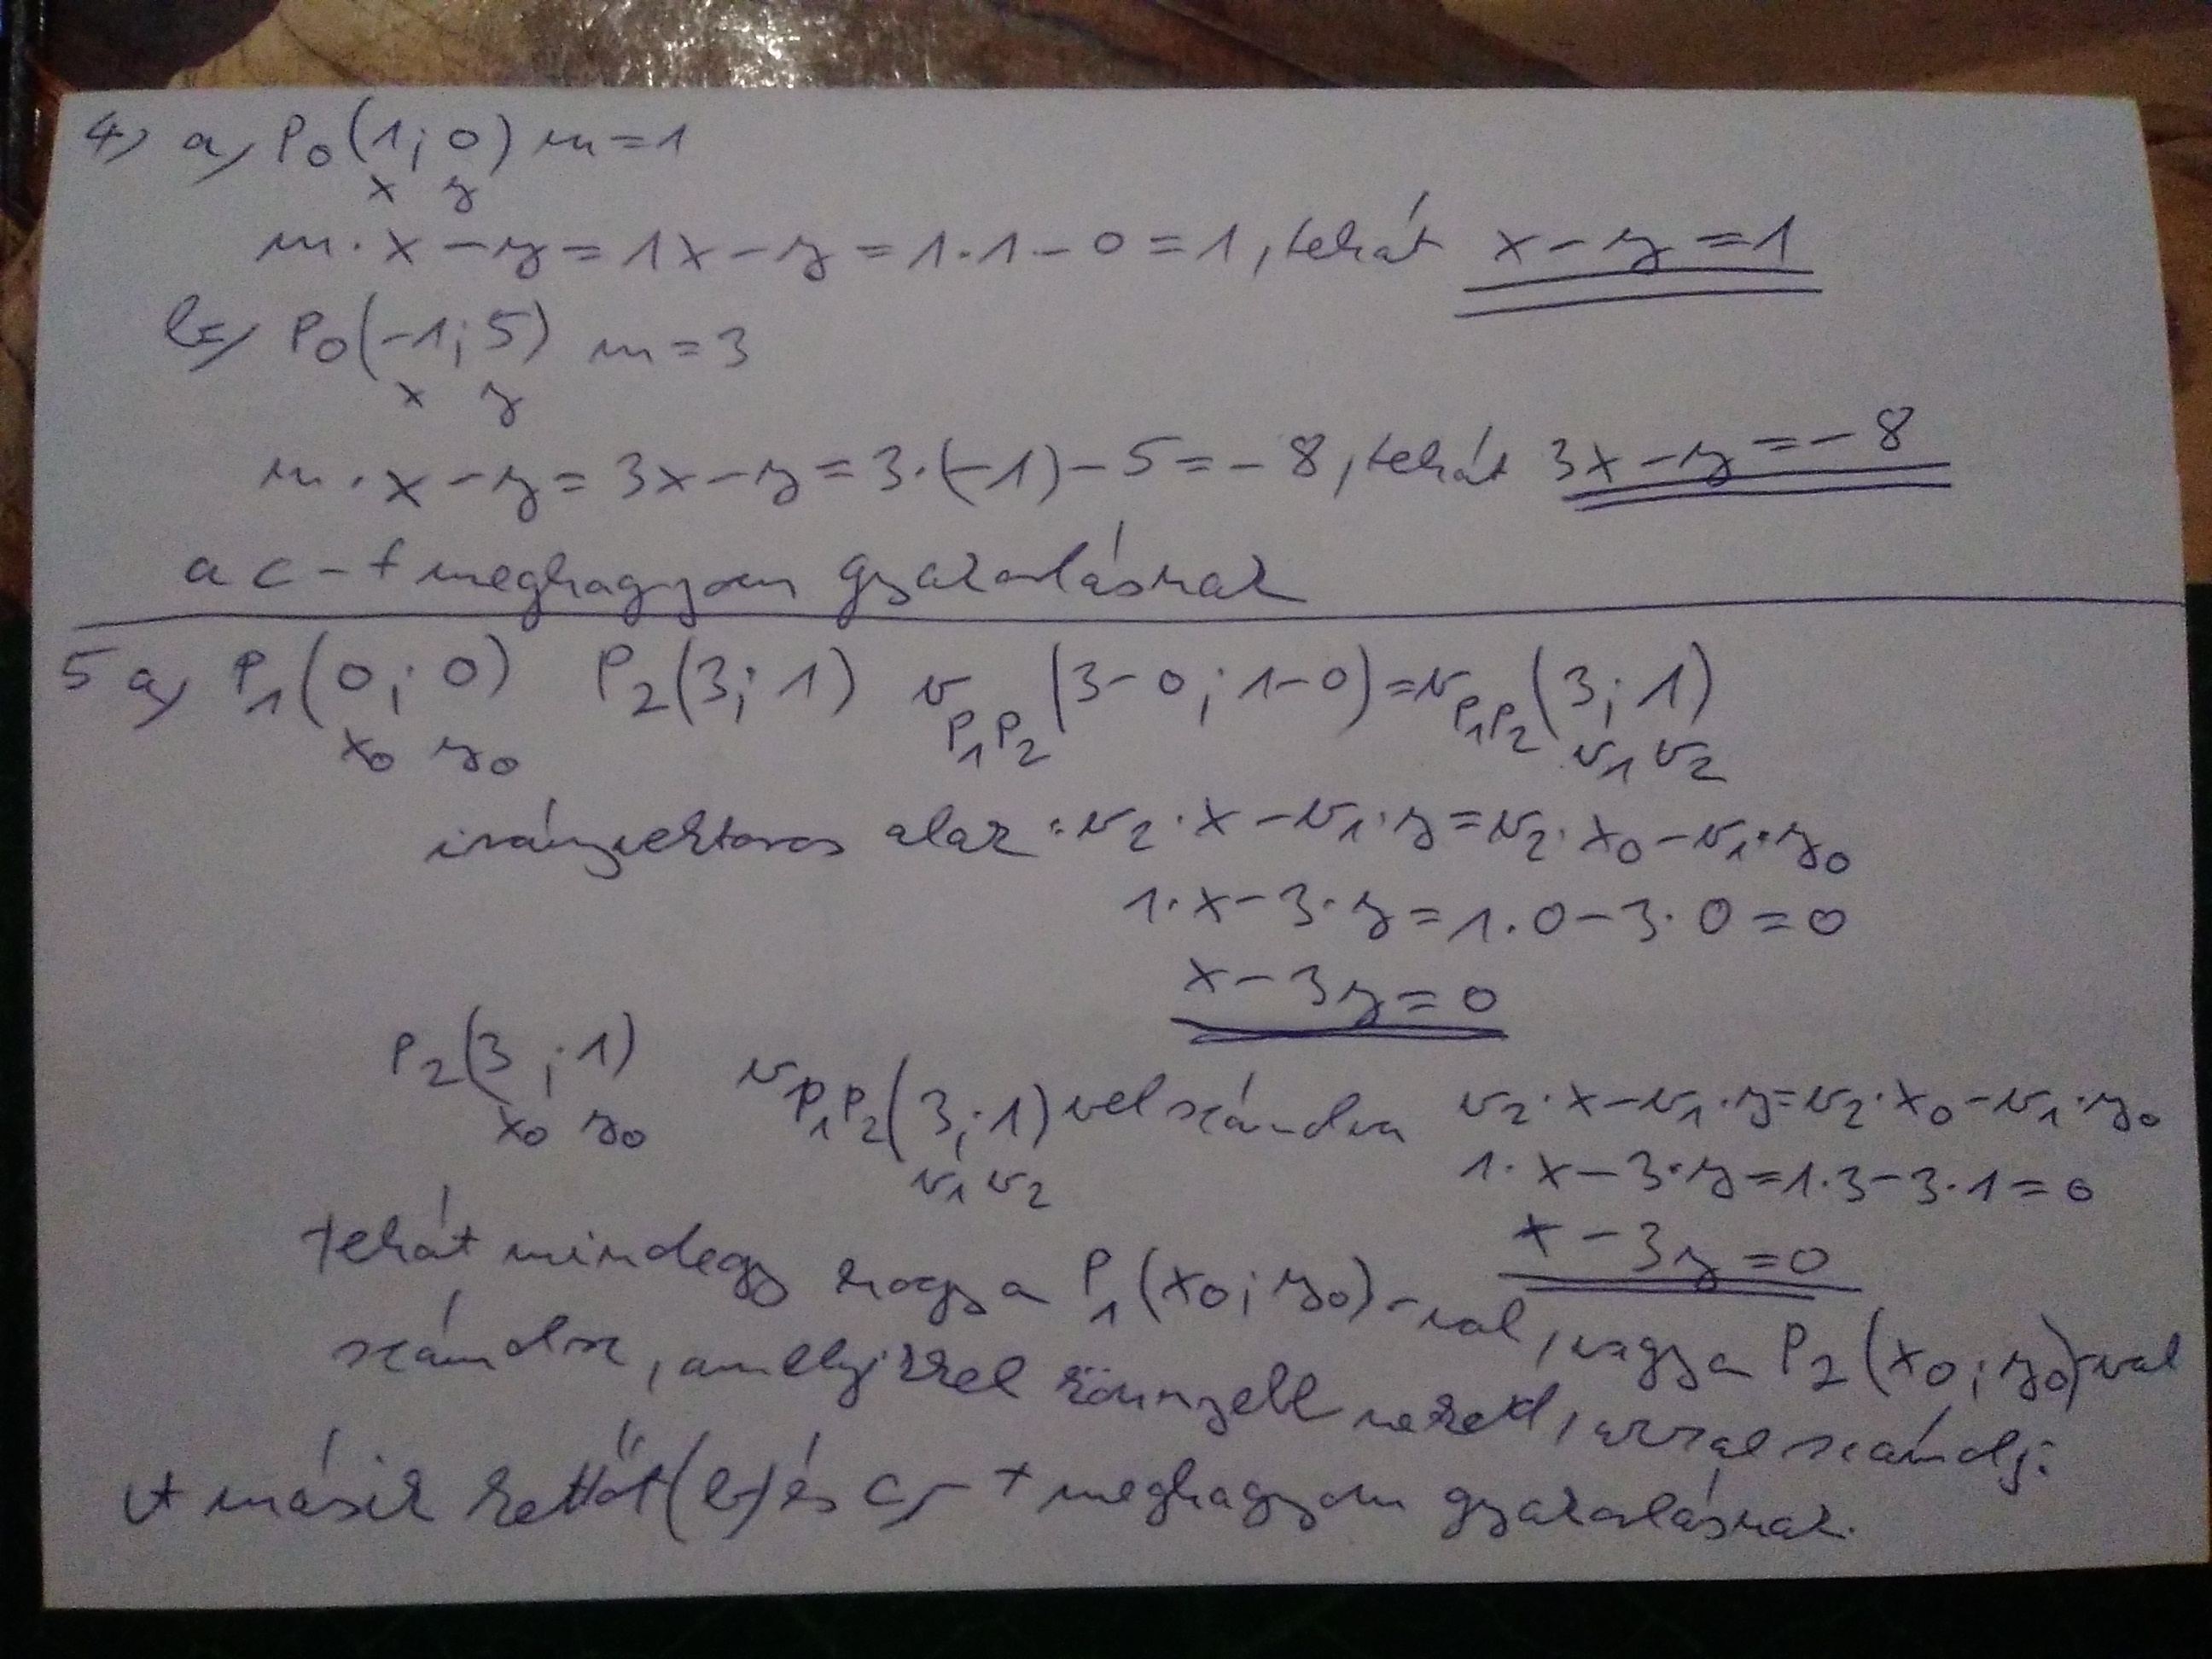 4) a) P₀(1; 0) m = 1
x y
m · x - y = 1x - y = 1 · 1 - 0 = 1, tehát x - y = 1
b) P₀(-1; 5) m = 3
x y
m · x - y = 3x - y = 3 · (-1) - 5 = -8, tehát 3x - y = -8
a c-t meghagyom gyakorlásnak
5 a) P₁(0; 0) P₂(3; 1) v_P₁P₂ (3-0; 1-0) = v_P₁P₂ (3; 1)
x₀ y₀ v₁ v₂
irányvektoros alak: v₂ · x - v₁ · y = v₂ · x₀ - v₁ · y₀
1 · x - 3 · y = 1 · 0 - 3 · 0 = 0
x - 3y = 0
P₂(3; 1) v_P₁P₂(3; 1) vel számolva v₂ · x - v₁ · y = v₂ · x₀ - v₁ · y₀
x₀ y₀ v₁ v₂ 1 · x - 3 · y = 1 · 3 - 3 · 1 = 0
x - 3y = 0
tehát mindegy hogy a P₁(x₀; y₀)-val, vagy a P₂(x₀; y₀)-val
számolsz, amelyikkel könnyebb neked, azzal számolj:
A másik kettőt (b) és c)-t meghagyom gyakorlásnak.